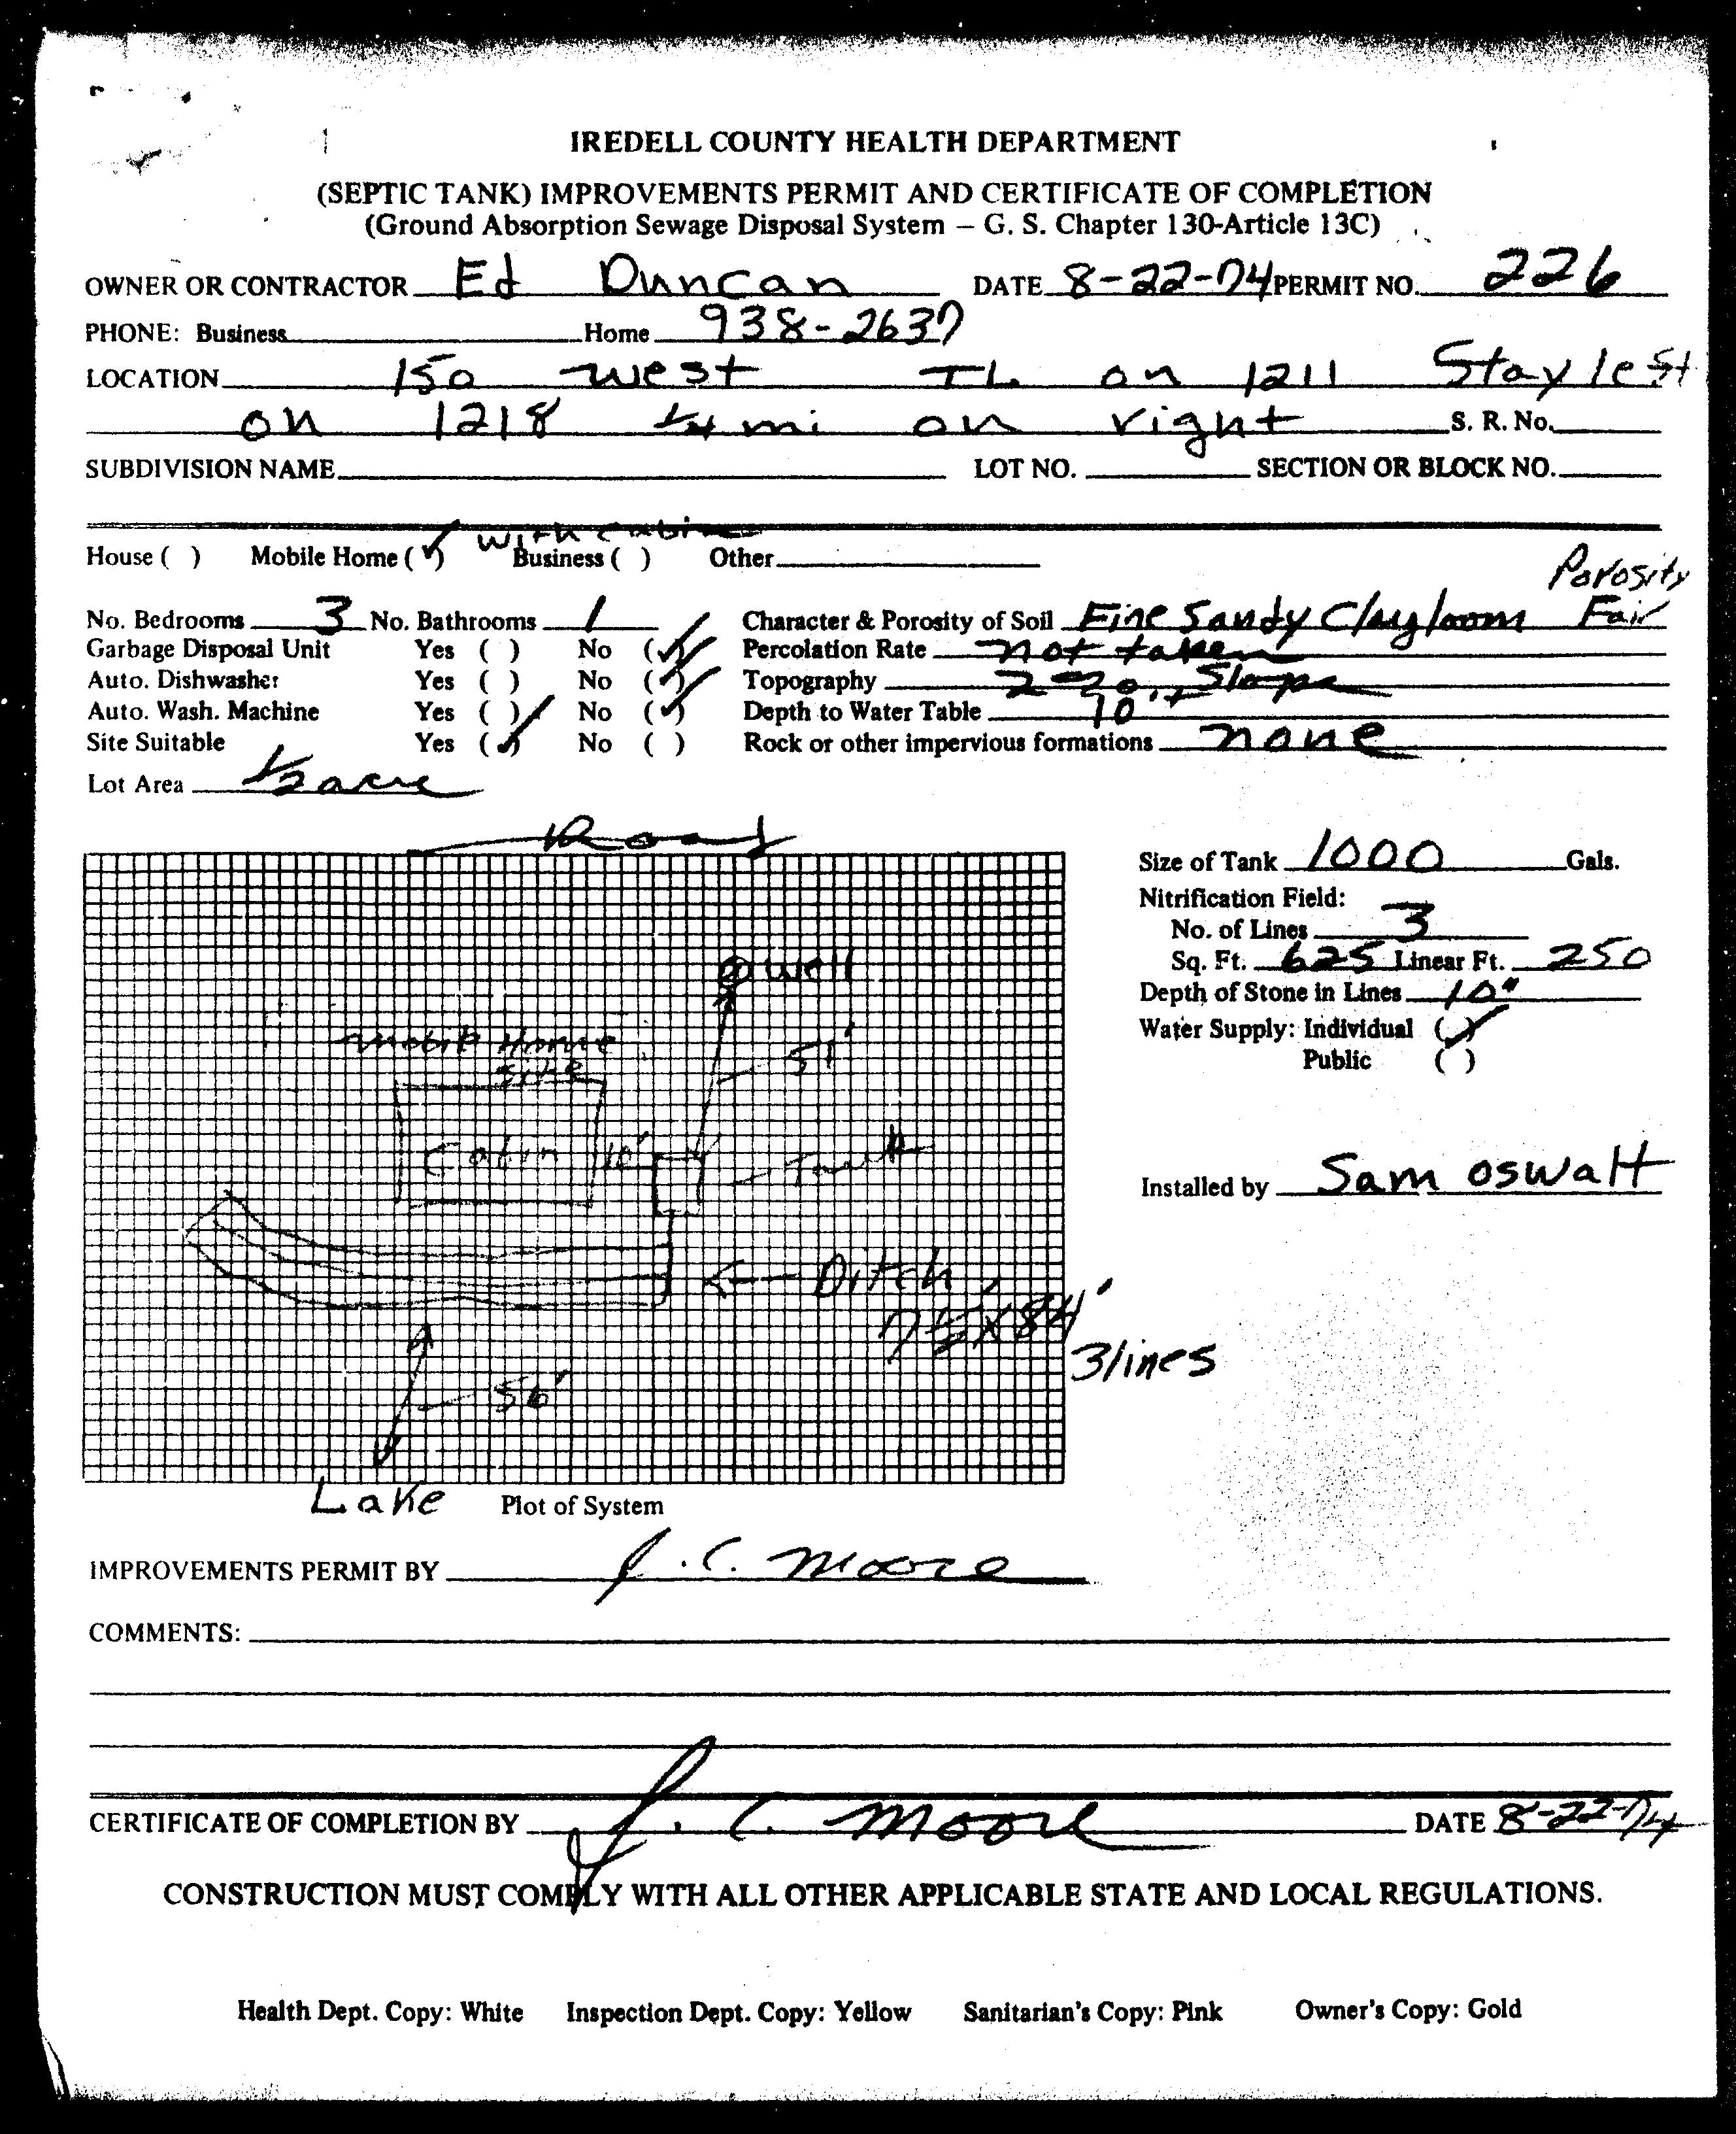 IREDELL COUNTY HEALTH DEPARTMENT
(SEPTIC TANK) IMPROVEMENTS PERMIT AND CERTIFICATE OF COMPLETION
(Ground Absorption Sewage Disposal System – G. S. Chapter 130-Article 13C)
OWNER OR CONTRACTOR Ed Duncan DATE 8-22-74 PERMIT NO. 226
PHONE: Business Home 938-2637
LOCATION 150 West TL on 1211 Stay left
on 1218 1/4 mi on right S. R. No.
SUBDIVISION NAME LOT NO. SECTION OR BLOCK NO.
with cabin
House ( ) Mobile Home (✓) Business ( ) Other
Porosity
No. Bedrooms 3 No. Bathrooms 1 Character & Porosity of Soil Fine Sandy Clay loom Fair
Garbage Disposal Unit Yes ( ) No (✓) Percolation Rate not taken
Auto. Dishwasher Yes ( ) No (✓) Topography Slope
Auto. Wash. Machine Yes ( ) No (✓) Depth to Water Table 10'+
Site Suitable Yes (✓) No ( ) Rock or other impervious formations none
Lot Area 1/2 acre
Road
Size of Tank 1000 Gals.
Nitrification Field:
No. of Lines 3
Sq. Ft. 625 Linear Ft. 250
Depth of Stone in Lines 10"
Water Supply: Individual (✓)
Public ( )
Well
Mobile Home
Site
51'
Cabin 10' Tank
Installed by Sam Oswalt
Ditch
3 lines
56'
Lake Plot of System
IMPROVEMENTS PERMIT BY J. C. Moore
COMMENTS:
CERTIFICATE OF COMPLETION BY J. C. Moore DATE 8-22-74
CONSTRUCTION MUST COMPLY WITH ALL OTHER APPLICABLE STATE AND LOCAL REGULATIONS.
Health Dept. Copy: White Inspection Dept. Copy: Yellow Sanitarian's Copy: Pink Owner's Copy: Gold